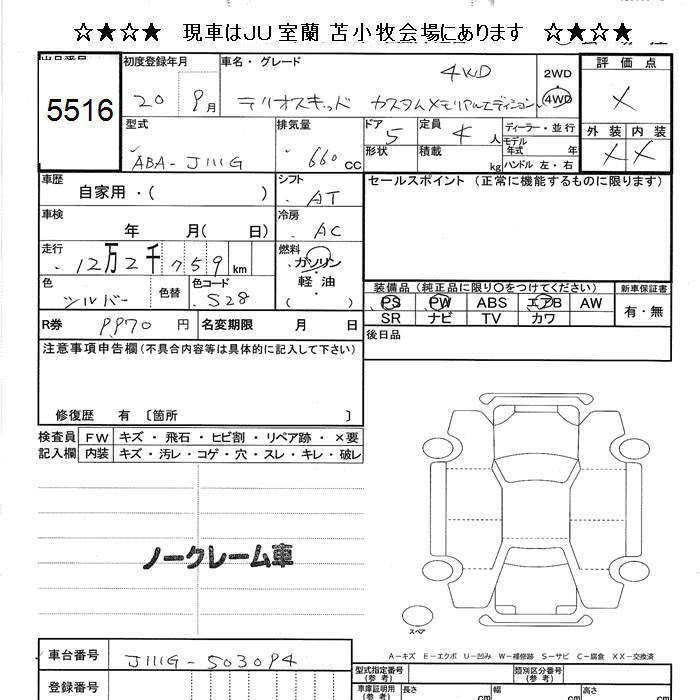 ☆★☆★ 現車はJU室蘭 苫小牧会場にあります ☆★☆★
出品番号 初度登録年月 車名・グレード 4WD 2WD 評価点
5516 20 9月 テリオスキッド カスタムメモリアルエディション 4WD X
型式 排気量 ドア 5 定員 4人 ディーラー・並行 外装 内装
ABA-J111G 660cc 形状 積載 kg モデル年式 年 X X
ハンドル 左・右
車歴 自家用・( ) シフト AT セールスポイント (正常に機能するものに限ります)
車検 年 月( 日) 冷房 AC
走行 12万2千759km 燃料 ガソリン
軽油
( )
色 シルバー 色替 色コード S28
装備品 (純正品に限り〇をつけてください) 新車保証書
PS PW ABS エアB AW 有・無
SR ナビ TV カワ
R券 9970円 名変期限 月 日 後日品
注意事項申告欄(不具合内容等は具体的に記入して下さい)
修復歴 有 〔箇所 〕
検査員 FW キズ・飛石・ヒビ割・リペア跡・×要
記入欄 内装 キズ・汚レ・コゲ・穴・スレ・キレ・破レ
ノークレーム車
スペア
A-キズ E-エクボ U-凹み W-補修跡 S-サビ C-腐食 XX-交換済
車台番号 J111G-503094
登録番号
型式指定番号(参考) 類別区分番号(参考)
車庫証明用(参考) 長さ cm 幅 cm 高さ cm